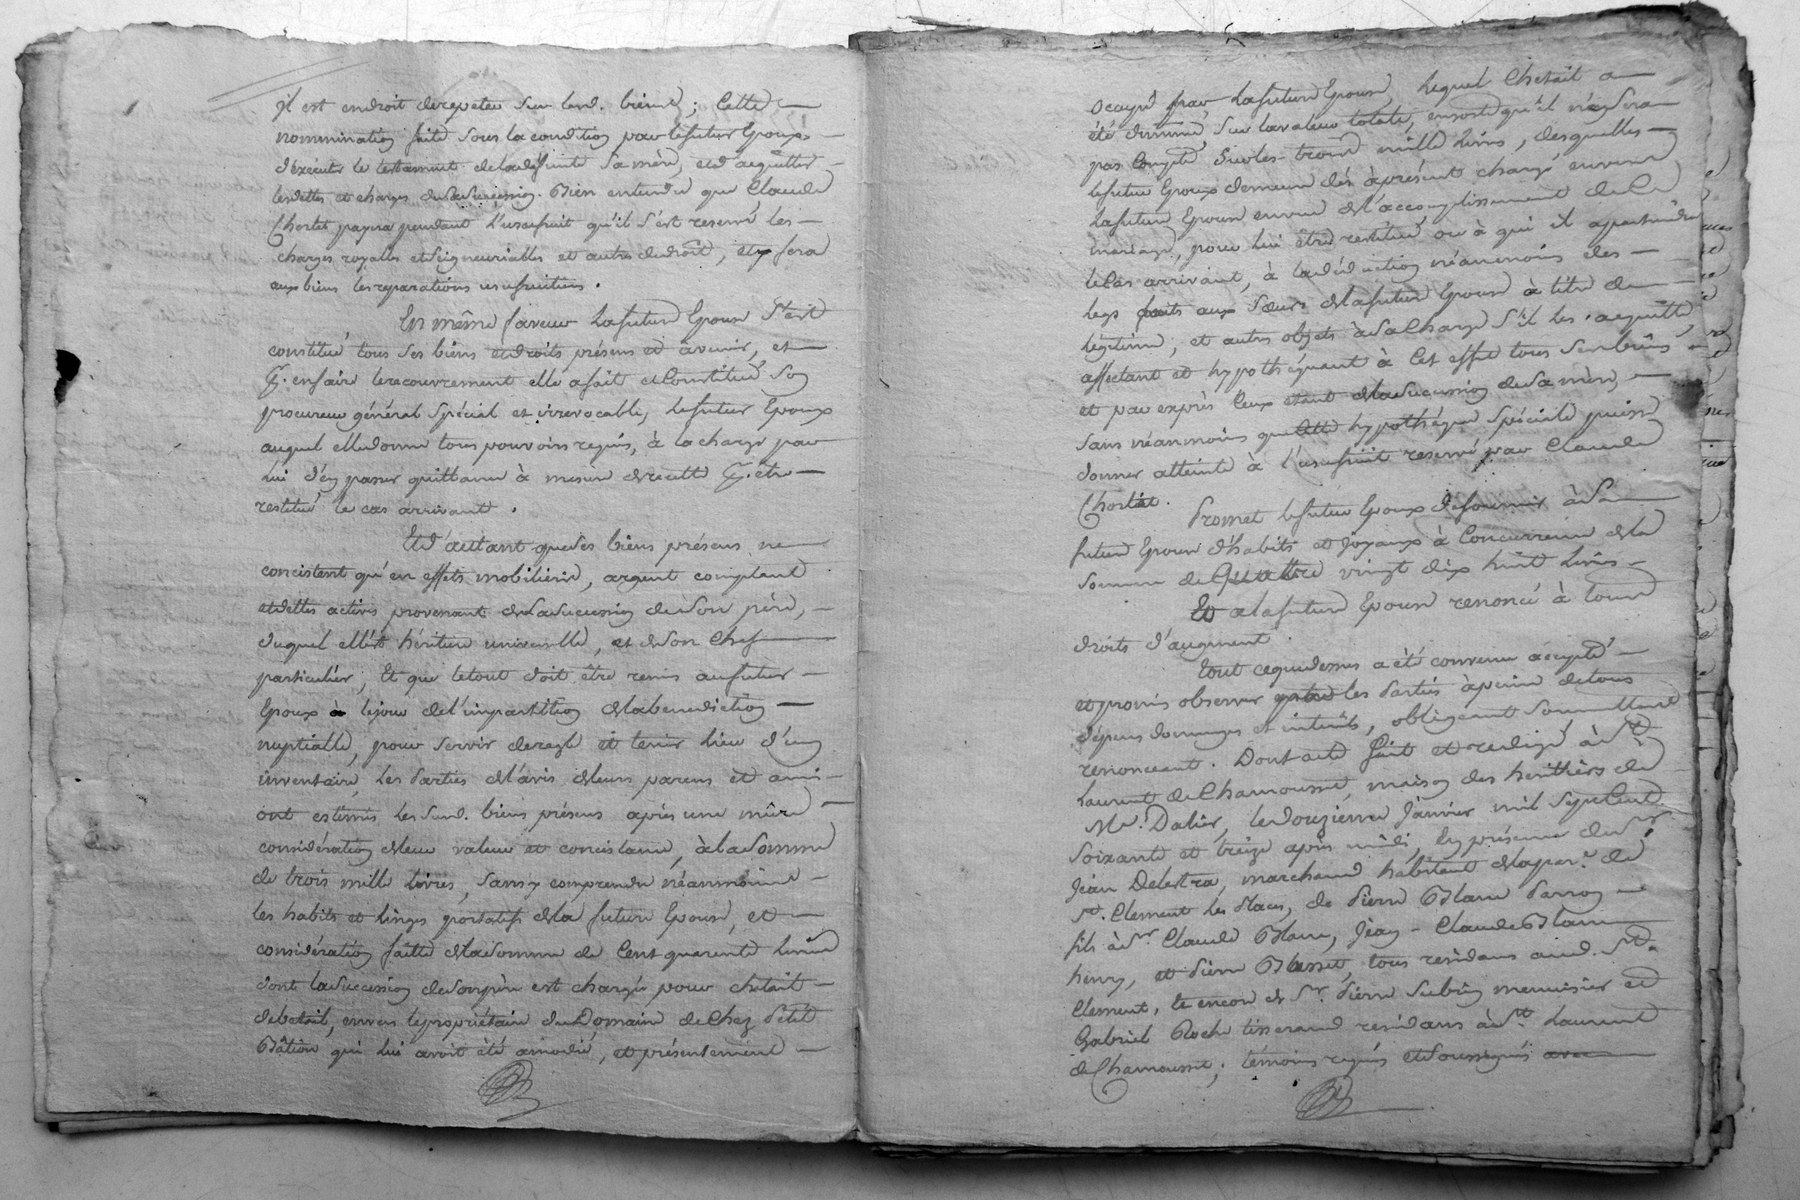 il est endroit derepeter sur lesd. biens ; Cette
nommination faite sous la condition par lefutur Epoux
d'exécuter le testament deladéfunte Sa mère, etd'acquitter
lesdettes et charges deSaSuccession. Bien entendu que Claude
Chortet payera pendant l'usufruit qu'il s'est reservé les
charges royalles etSeigneurialles et autres dudroit, etfera
aux biens les reparations usufruitieres.
En même faveur Lafuture Epouse S'est
constitué tous Ses biens etdroits présens et avenir, et
pr. enfaire lerecouvrement elle afait etConstitué Son
procureur général spécial et irrévocable, lefutur Epoux
auquel elledonne tous pouvoirs requis, à la charge par
Lui d'en passer quittance à mesure derecette pr. être
restitué le cas arrivant.
Et d'autant queses biens présens ne
concistent qu'en effets mobiliers, argent comptant
etdettes actives provenant delaSuccession deSon père,
duquel elle'st héritiere universelle, et deSon Chef
particulier, Et que letout doit être remis aufutur
Epoux à lejour del'impartition delabenediction
nuptialle, pour servir deregle et tenir lieu d'un
inventaire, Les Parties del'avis deleurs parens et amis
ont estimés les Susd. biens présens après une mûre
considération deleur valeur et concistance, à laSomme
de trois mille livres, Sans y comprendre néanmoins
les habits et linges portatifs dela future Epouse, et
considération faitte delaSomme de Cent quarente livres
dont laSuccession deSonpère est chargée pour cheteil
debetail, envers lepropriétaire duDomaine de Chez Petit
Bâtion qui lui avoit été amodié, et présentement
occupé par Lafuture Epouse lequel Cheteil a
été diminué sur lavaleur totale, ensorte qu'il n'en Sera
pas Compté Surles trois mille livres, desquelles
lefutur Epoux demeure dès àprésent chargé envers
Lafuture Epouse envue del'accomplissement duCe
mariage, pour lui être restitué ou à qui il appartiendra
leCas arrivant, à ladéduction néanmoins des
legs faits aux Sœurs delafuture Epouse à titre de
légitime, et autres objets àSaCharge S'il les acquitte,
affectant et hypothéquant à Cet effet tous Sesbiens
et par exprès Ceux etant delaSuccession deSa mère,
Sans néanmoins queCette hypothéque Spéciale puisse
donner atteinte à l'usufruit reservé par Claude
Chortet.
Promet lefutur Epoux defournir àSa
future Epouse d'habits et joyaux à Concurrence dela
Somme deQuattre vingt dix huit livres
Et a lafuture Epouse renoncé à tous
droits d'augment.
Tout cequedessus a été convenu accepté
etpromis observer entre les Parties àpeine detous
dépens dommages et intérêts, obligeant Soumettant
renonceant. Dont acte fait et redigé à St.
Laurent de Chamousset, maison des héritiers de
Me. Dalier, ledouzieme Janvier mil SeptCent
Soixante et treize après midi, En présence deSr.
Jean Delestra, marchand habitant delapar.e de
St. Clement Les Places, de Pierre Blanc Parron
fils àSr. Claude Blanc, Jean-Claude Blanc
henry, et Pierre Blasset, tous residans aud. St.
Clement, te encore de Sr. Pierre Subrin menuisier et
Gabriel Roche tisserand residans àSt. Laurent
deChamousset ; témoins requis etSoussignés avec